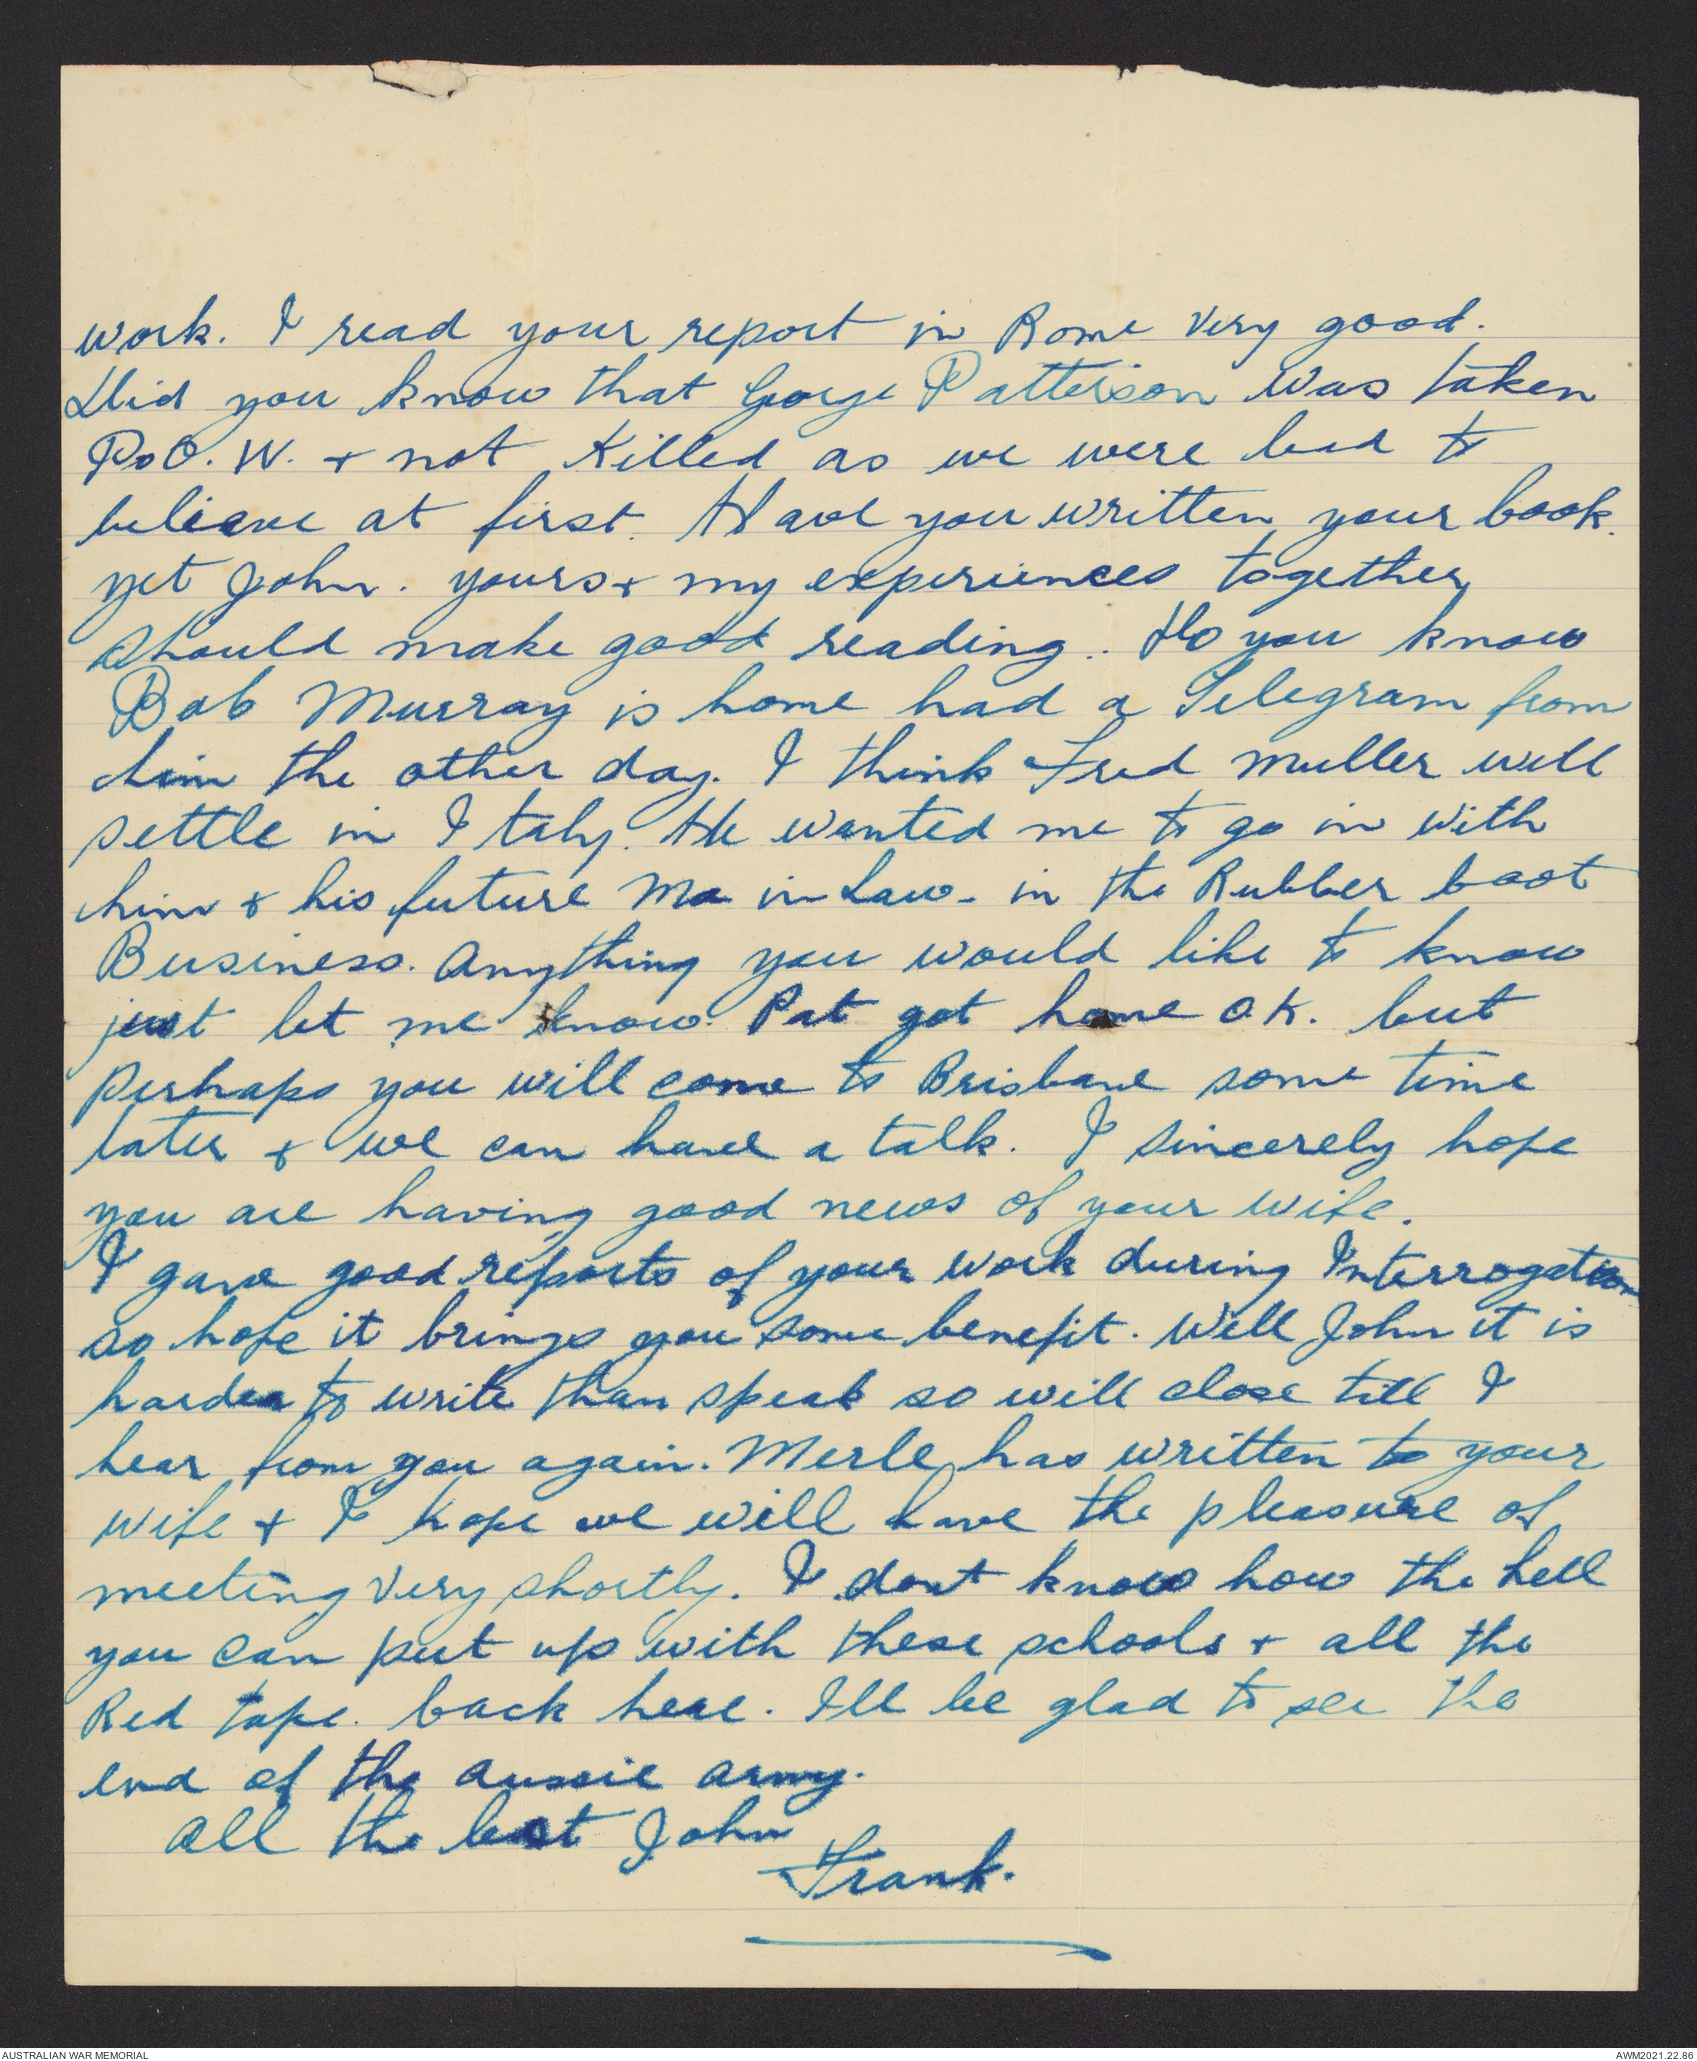 work. I read your report in Rome very good.
Did you know that George Patterson was taken
P.O.W. + not Killed as we were lead to
believe at first. Have you written your book.
yet John. yours + my experiences together
should make good reading. Do you know
Bob Murray is home had a Telegram from
him the other day. I think Fred Muller will
settle in Italy. He wanted me to go in with
him + his future Ma in Law - in the Rubber boot
Business. Anything you would like to know
just let me know. Pat got home O.K. but
perhaps you will come to Brisbane some time
later + we can have a talk. I sincerely hope
you are having good news of your wife.
I gave good reports of your work during Interrogation
so hope it brings you some benefit. Well John it is
harder to write than speak so will close till I
hear from you again. Merle has written to your
wife + I hope we will have the pleasure of
meeting very shortly. I dont know how the hell
you can put up with these schools + all the
Red tape. back here. I'll be glad to see the
end of the Aussie army.
All the best John
Frank.
AUSTRALIAN WAR MEMORIAL
AWM2021.22.86